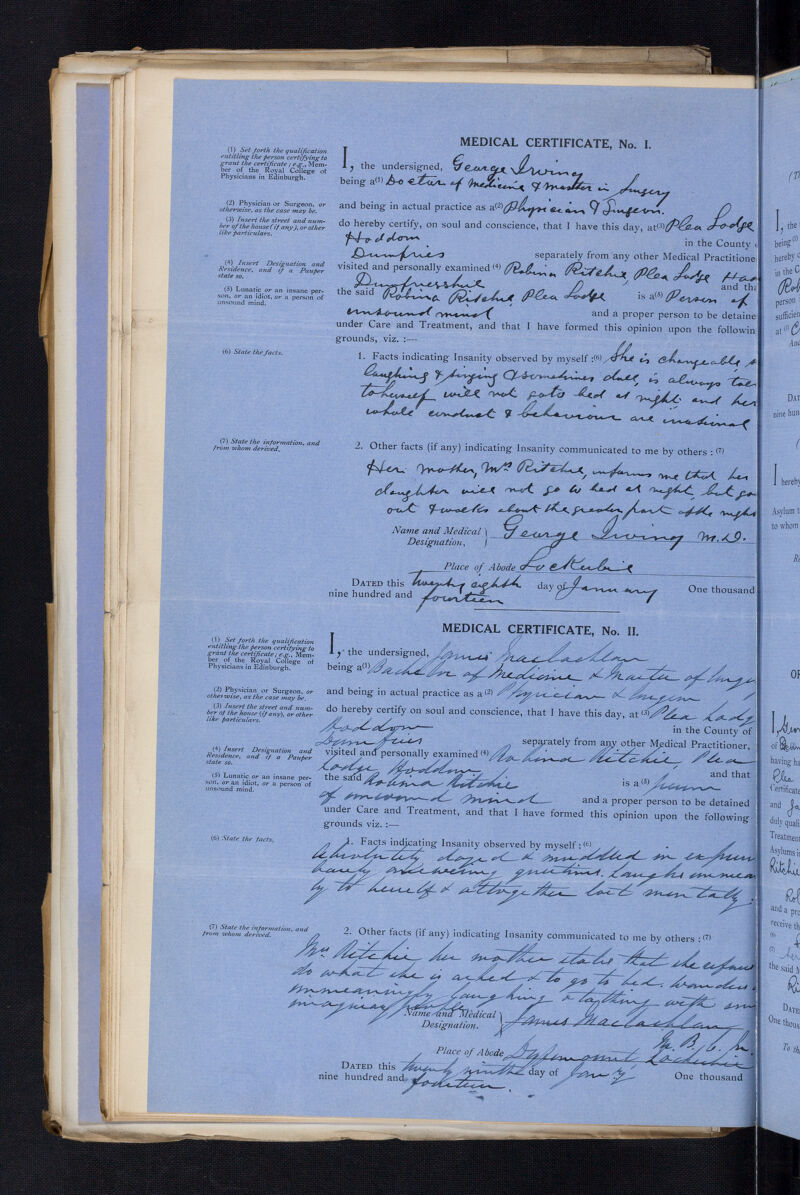 MEDICAL CERTIFICATE, No. I.
(1) Set forth the qualification
entitling the person certifying to
grant the certificate; e.g., Mem-
ber of the Royal College of
Physicians in Edinburgh.
I, the undersigned, George Irving
being a(1) Doctor of Medicine & Master in Surgery
(2) Physician or Surgeon, or
otherwise, as the case may be.
and being in actual practice as a(2) Physician & Surgeon.
(3) Insert the street and num-
ber of the house (if any), or other
like particulars.
do hereby certify, on soul and conscience, that I have this day, at(3) Plea Lodge
Hoddom in the County
Dumfries separately from any other Medical Practitione
(4) Insert Designation and
Residence, and if a Pauper
state so.
visited and personally examined (4) Robina Ritchie, Plea Lodge
Dumfriesshire and tha
(5) Lunatic or an insane per-
son, or an idiot, or a person of
unsound mind.
the said Robina Ritchie, Plea Lodge is a(5) Person of
unsound mind and a proper person to be detaine
under Care and Treatment, and that I have formed this opinion upon the followin
grounds, viz. :—
(6) State the facts.
1. Facts indicating Insanity observed by myself :(6) She is changeable,
laughing & singing & sometimes dull, is always
to herself will not go to bed at night and her
whole conduct & behaviour are irrational
(7) State the information, and
from whom derived.
2. Other facts (if any) indicating Insanity communicated to me by others : (7)
Her mother, Mrs Ritchie, informs me that her
daughter will not go to bed at night, but
out & walks about the greater part of the night
Name and Medical
Designation, George Irving M.D.
Place of Abode Lockerbie
DATED this twenty eighth day of January One thousand
nine hundred and fourteen
MEDICAL CERTIFICATE, No. II.
(1) Set forth the qualification
entitling the person certifying to
grant the certificate; e.g., Mem-
ber of the Royal College of
Physicians in Edinburgh.
I, the undersigned, James Maclachlan
being a(1) Bachelor of Medicine & Master of Surge
(2) Physician or Surgeon, or
otherwise, as the case may be.
and being in actual practice as a (2) Physician & Surgeon
(3) Insert the street and num-
ber of the house (if any), or other
like particulars.
do hereby certify on soul and conscience, that I have this day, at (3) Plea Lodg
Hoddom in the County of
Dumfries separately from any other Medical Practitioner,
(4) Insert Designation and
Residence, and if a Pauper
state so.
visited and personally examined (4) Robina Ritchie, Plea
Lodge Hoddom and that
(5) Lunatic or an insane per-
son, or an idiot, or a person of
unsound mind.
the said Robina Ritchie is a (5) person
of unsound mind and a proper person to be detained
under Care and Treatment, and that I have formed this opinion upon the following
grounds viz. :—
(6) State the facts.
1. Facts indicating Insanity observed by myself : (6)
Absolutely dazed & muddled in
barely answering questions. Laughs unmea
ly to herself & altogether lost mentally.
(7) State the information, and
from whom derived.
2. Other facts (if any) indicating Insanity communicated to me by others : (7)
Mrs Ritchie her mother states that she refuses
do what she is asked & to go to bed. Wanders
unmeaningly laughing & talking with
imaginary people
Name and Medical
Designation. James Maclachlan
M.B., C.M.
Place of Abode Lockerbie
DATED this twenty ninth day of Jany One thousand
nine hundred and fourteen.
I, the
being (1)
hereby c
in the C
Rob
person
sufficien
at (7)
And
DAT
nine hun
I hereby
Asylum t
to whom
of
having ha
Plea
Certificate
and Ja
duly quali
Treatment
Asylums i
Ritchie
and a pro
receive th
the said
DATE
One thous
To th